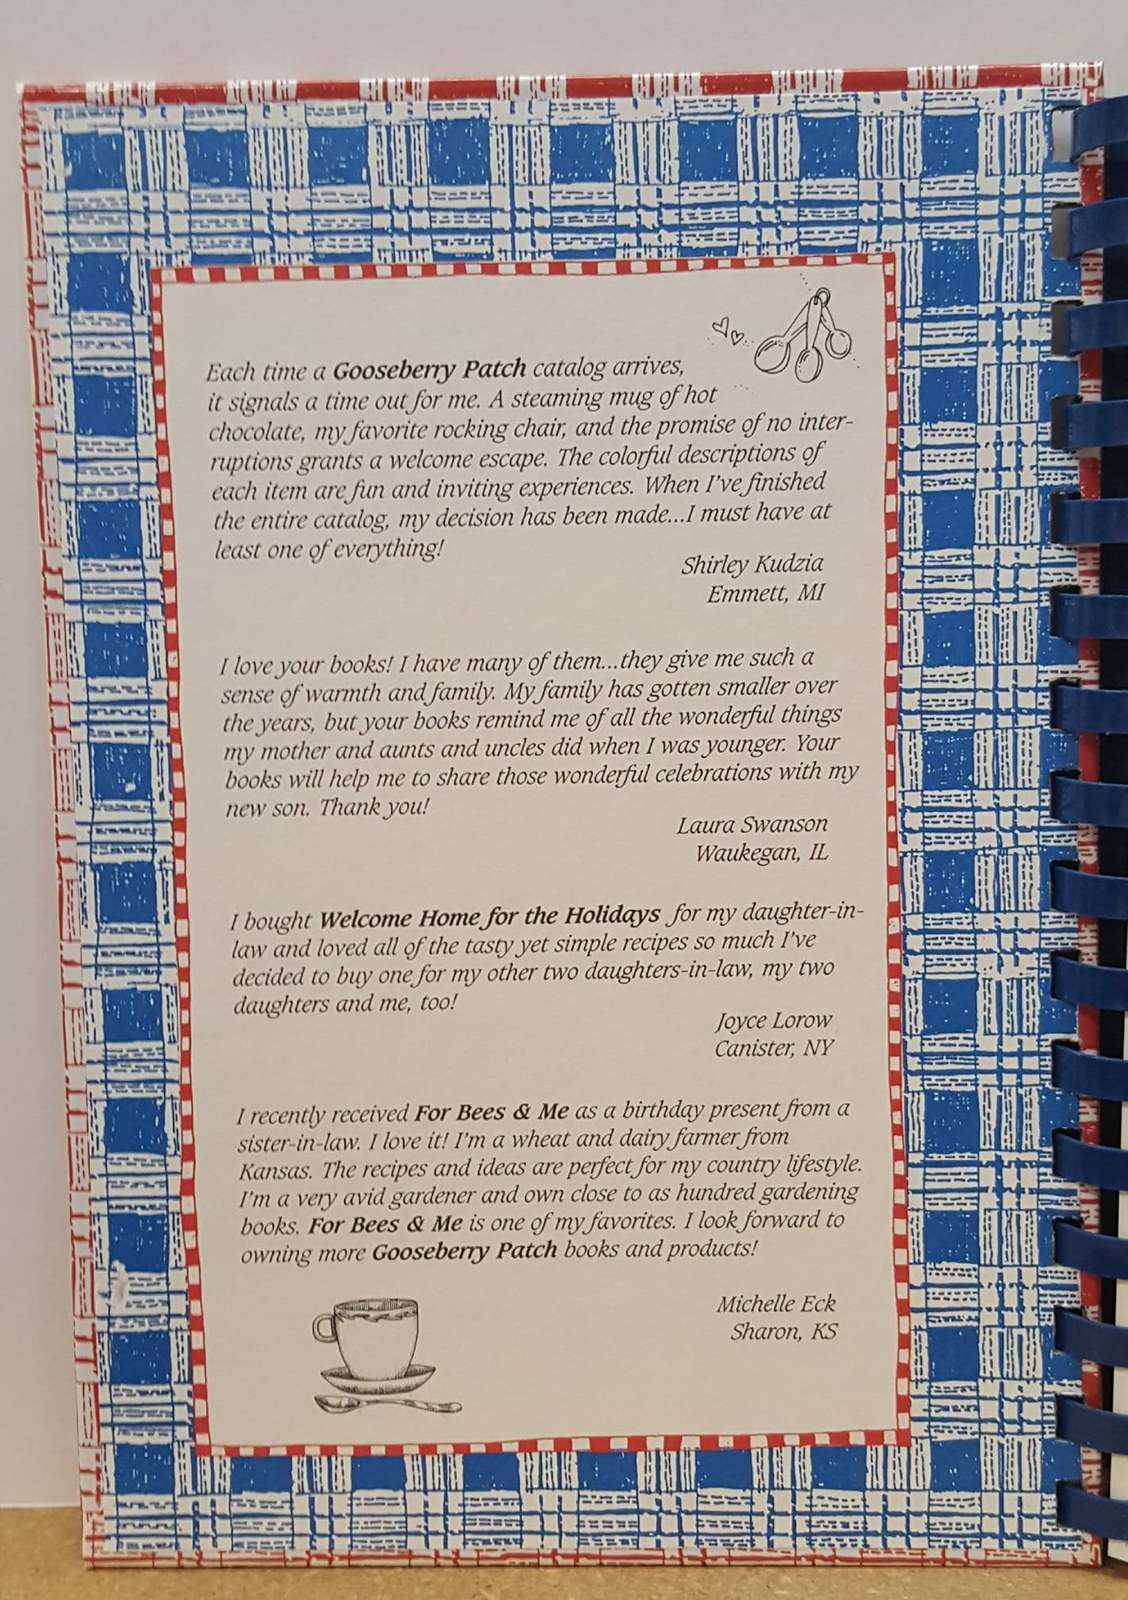 Each time a Gooseberry Patch catalog arrives,
it signals a time out for me. A steaming mug of hot
chocolate, my favorite rocking chair, and the promise of no inter-
ruptions grants a welcome escape. The colorful descriptions of
each item are fun and inviting experiences. When I've finished
the entire catalog, my decision has been made...I must have at
least one of everything!
Shirley Kudzia
Emmett, MI
I love your books! I have many of them...they give me such a
sense of warmth and family. My family has gotten smaller over
the years, but your books remind me of all the wonderful things
my mother and aunts and uncles did when I was younger. Your
books will help me to share those wonderful celebrations with my
new son. Thank you!
Laura Swanson
Waukegan, IL
I bought Welcome Home for the Holidays for my daughter-in-
law and loved all of the tasty yet simple recipes so much I've
decided to buy one for my other two daughters-in-law, my two
daughters and me, too!
Joyce Lorow
Canister, NY
I recently received For Bees & Me as a birthday present from a
sister-in-law. I love it! I'm a wheat and dairy farmer from
Kansas. The recipes and ideas are perfect for my country lifestyle.
I'm a very avid gardener and own close to as hundred gardening
books. For Bees & Me is one of my favorites. I look forward to
owning more Gooseberry Patch books and products!
Michelle Eck
Sharon, KS